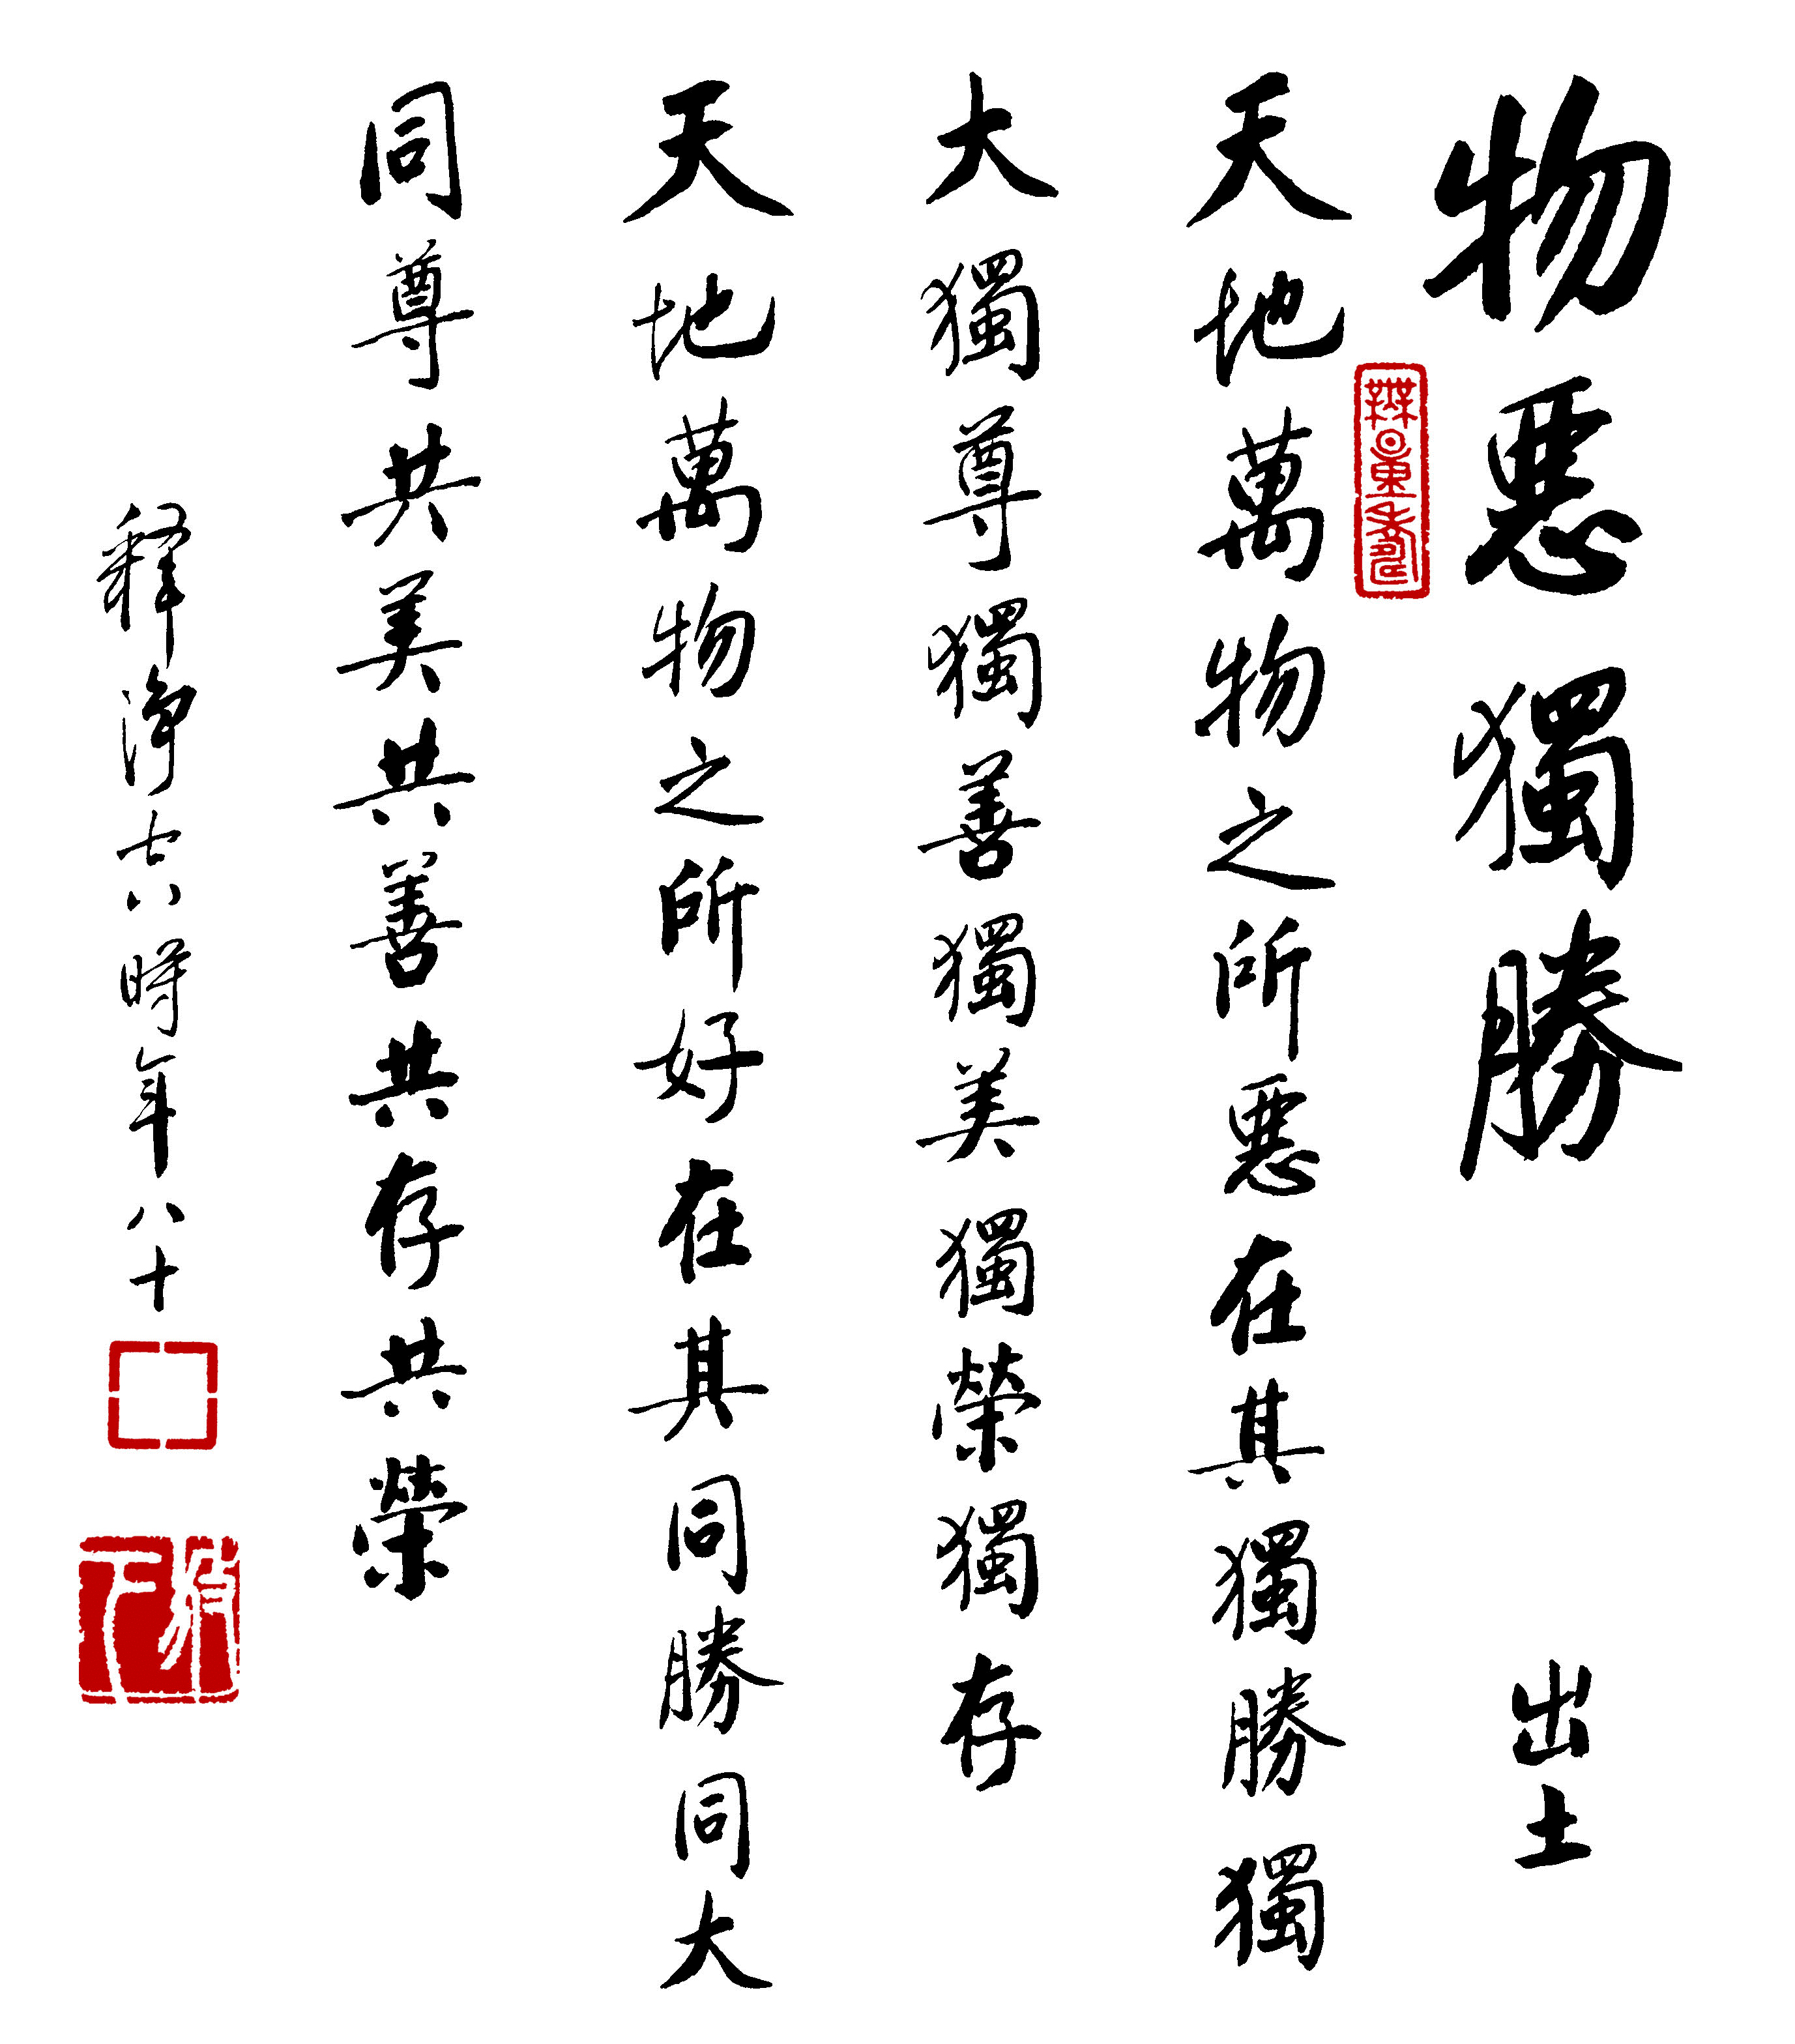 物惡獨勝 出土
無量壽
天地萬物之所惡在其獨勝獨
大獨尊獨善獨美獨榮獨存
天地萬物之所好在其同勝同大
同尊共美共善共存共榮
釋淨空時年八十